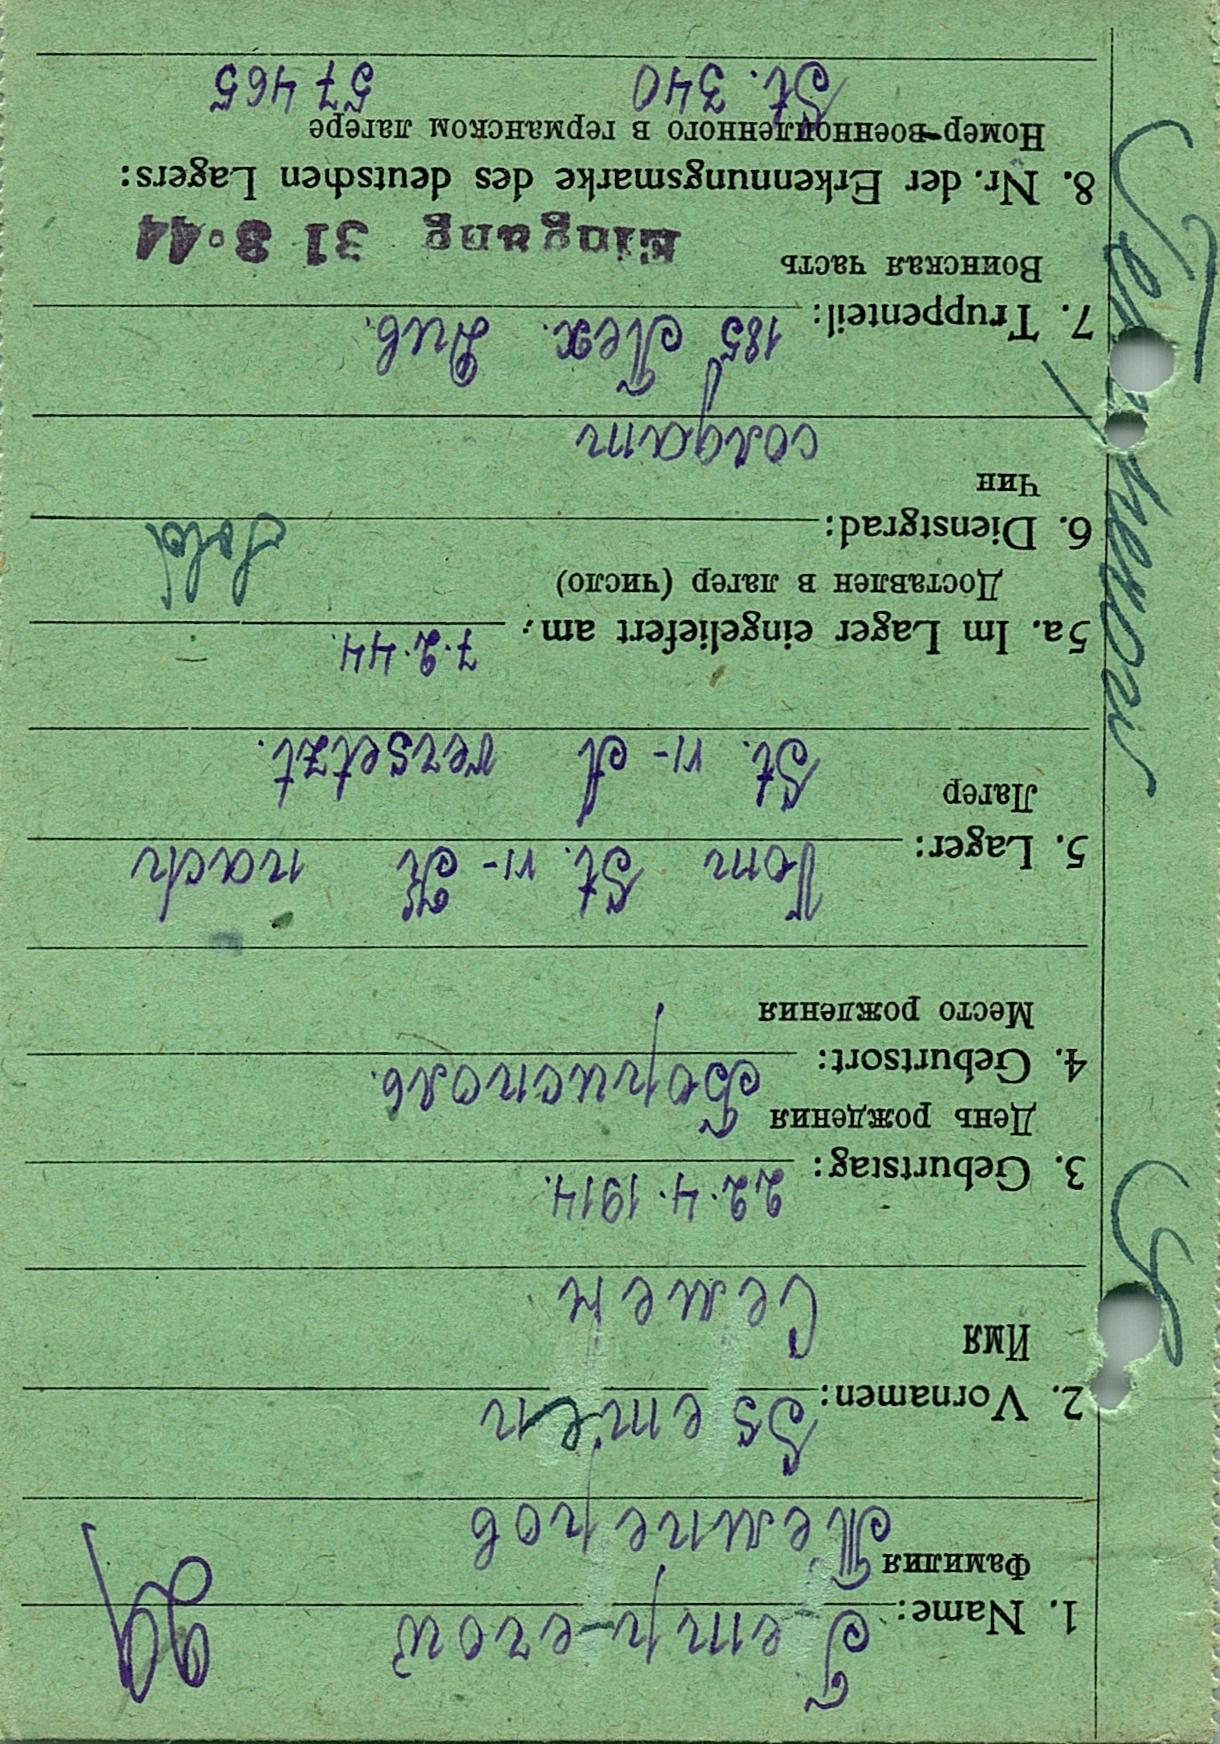 1. Name: Temp-erow
Фамилия Темперов
2. Vornamen: Ssemen
Имя Семен
3. Geburtstag: 22.4.1914.
День рождения
4. Geburtsort: Борисполь.
Место рождения
5. Lager: Vom St. VI-K nach
Лагер St. VI-A versetzt.
5a. Im Lager eingeliefert am: 7.2.44.
Доставлен в лагер (число)
6. Dienstgrad: Sold
Чин солдат
7. Truppenteil: 185 Див.
Воинская часть Eingang 31 8.44
8. Nr. der Erkennungsmarke des deutschen Lagers:
Номер военнопленного в германском лагере
St. 340 57465